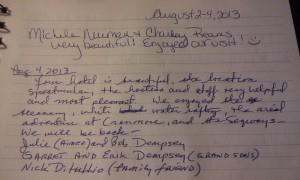 August 2-4, 2013
Michele Newman & Charley
Very beautiful! Enjoyed our visit!
Aug 4, 2013
Your hotel is beautiful, the location
spectacular, the hostess and staff very helpful
and most pleasant. We enjoyed the
scenery, white water rafting, the aerial
adventure at Cranmore, and the Segways.
We will be back-
Julie (Aimee) and Bob Dempsey
GARRET AND Erik Dempsey (GRANDSONS)
Nick (family friend)